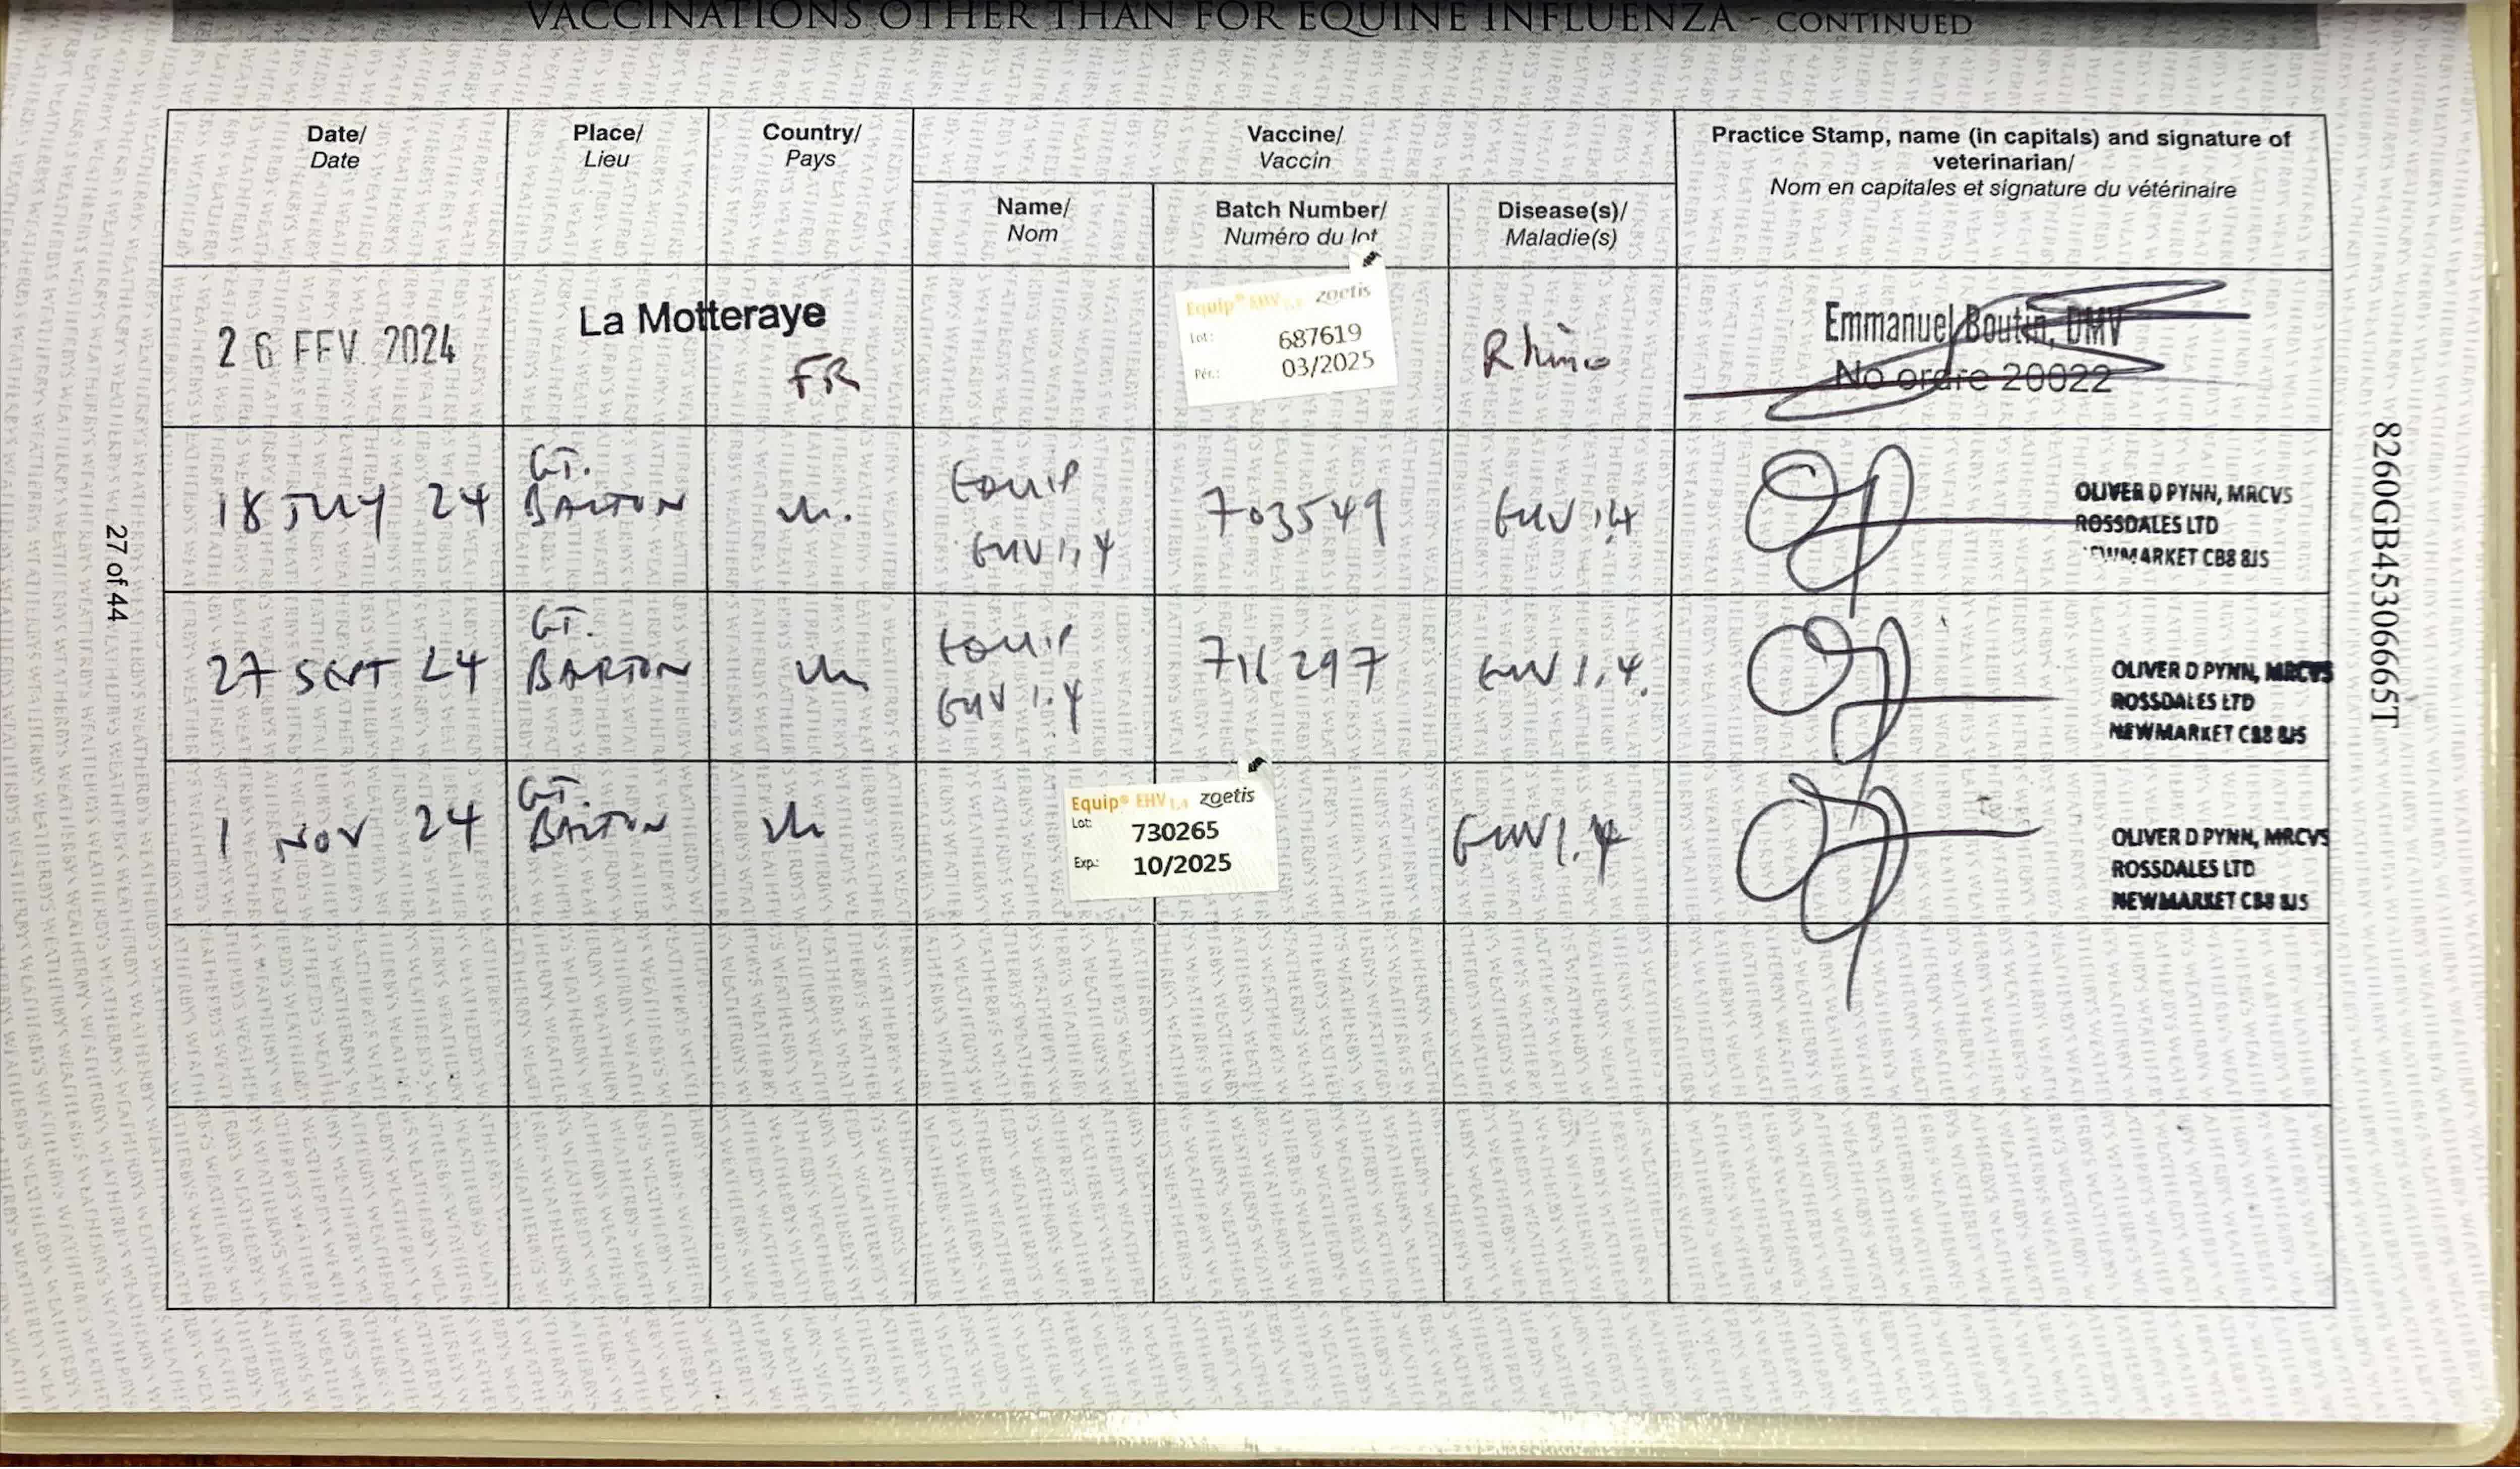 VACCINATIONS OTHER THAN FOR EQUINE INFLUENZA - CONTINUED
Date/
Date
Place/
Lieu
Country/
Pays
Vaccine/
Vaccin
Practice Stamp, name (in capitals) and signature of
veterinarian/
Nom en capitales et signature du vétérinaire
Name/
Nom
Batch Number/
Numéro du lot
Disease(s)/
Maladie(s)
26 FEV. 2024
La Motteraye
FR
Equip® EHV 1,4 zoetis
Lot: 687619
Pér.: 03/2025
Rhino
Emmanuel Boutin, DMV
No ordre 20022
18 JULY 24
GT.
BARTON
UK.
EQUIP
EHV 1,4
703549
EHV 1,4
OLIVER D PYNN, MRCVS
ROSSDALES LTD
NEWMARKET CB8 8JS
27 SEPT 24
GT.
BARTON
UK
EQUIP
EHV 1.4
716297
EHV 1,4.
OLIVER D PYNN, MRCVS
ROSSDALES LTD
NEWMARKET CB8 8JS
1 NOV 24
GT.
BARTON
UK
Equip® EHV 1,4 zoetis
Lot: 730265
Exp.: 10/2025
EHV 1.4
OLIVER D PYNN, MRCVS
ROSSDALES LTD
NEWMARKET CB8 8JS
27 of 44
8260GB45306665T